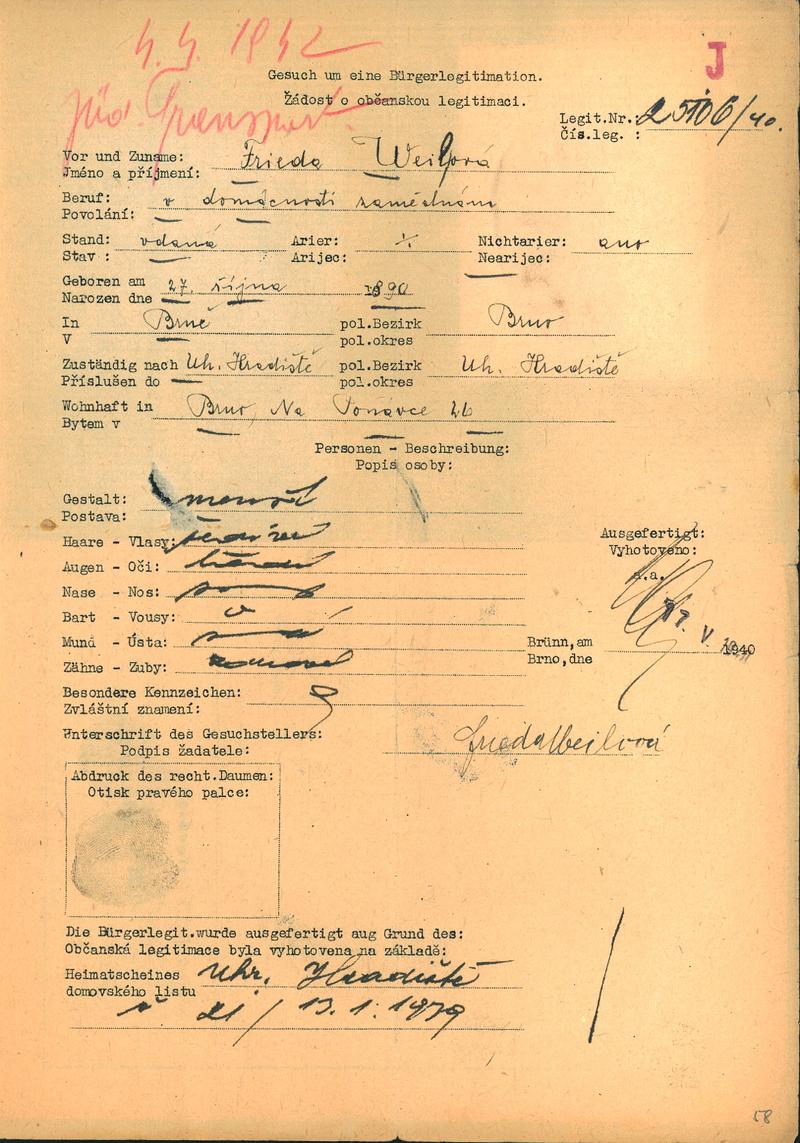 4. 4. 1942
J
Gesuch um eine Bürgerlegitimation.
Žádost o občanskou legitimaci.
jüd. Transport.
Legit.Nr.: 25106/40.
Čís.leg. :
Vor und Zuname: Frieda Weilová
Jméno a příjmení:
Beruf: v domácnosti zaměstnána
Povolání:
Stand: vdaná Arier: ./. Nichtarier: ano
Stav : Arijec: Nearijec:
Geboren am 27. října 1890
Narozen dne
In Brně pol.Bezirk Brno
V pol.okres
Zuständig nach Uh. Hradiště pol.Bezirk Uh. Hradiště
Příslušen do pol.okres
Wohnhaft in Brno, Na Ponávce 26
Bytem v
Personen - Beschreibung:
Popis osoby:
Gestalt: menší
Postava:
Haare - Vlasy:
Augen - Oči: hnědé
Nase - Nos:
Bart - Vousy:
Mund - Ústa:
Zähne - Zuby:
Ausgefertigt:
Vyhotoveno:
Brünn,am V. 1940
Brno,dne
Besondere Kennzeichen:
Zvláštní znamení:
Unterschrift des Gesuchstellers: Frieda Weilová
Podpis žadatele:
Abdruck des recht.Daumen:
Otisk pravého palce:
Die Bürgerlegit.wurde ausgefertigt aug Grund des:
Občanská legitimace byla vyhotovena na základě:
Heimatscheines Uhr. Hradiště
domovského listu
č 21/ 13.1.1939
58